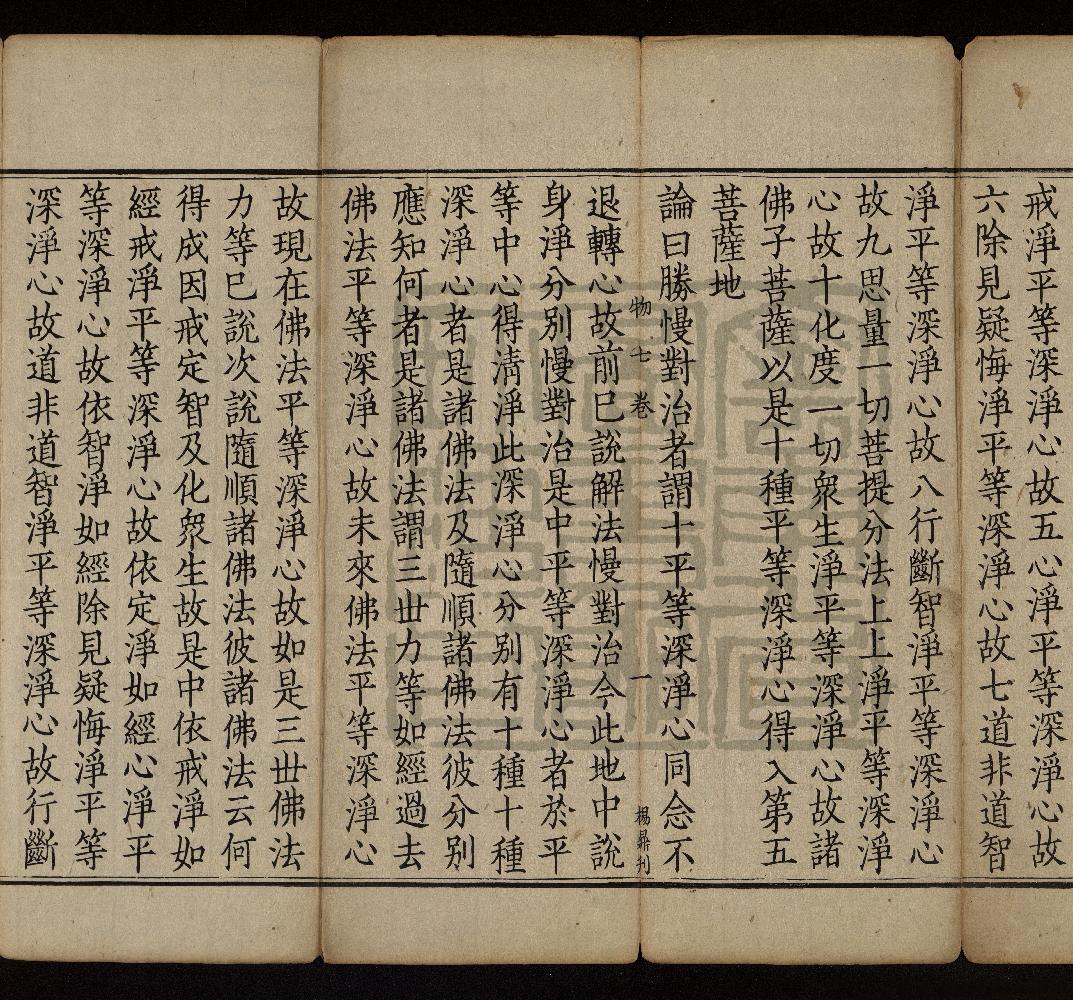 戒淨平等深淨心故五心淨平等深淨心故
六除見疑悔淨平等深淨心故七道非道智
淨平等深淨心故八行斷智淨平等深淨心
故九思量一切菩提分法上上淨平等深淨
心故十化度一切眾生淨平等深淨心故諸
佛子菩薩以是十種平等深淨心得入第五
菩薩地
論曰勝慢對治者謂十平等深淨心同念不
物七卷 一 楊鼎刊
退轉心故前已說解法慢對治今此地中說
身淨分別慢對治是中平等深淨心者於平
等中心得清淨此深淨心分別有十種十種
深淨心者是諸佛法及隨順諸佛法彼分別
應知何者是諸佛法謂三世力等如經過去
佛法平等深淨心故未來佛法平等深淨心
故現在佛法平等深淨心故如是三世佛法
力等已說次說隨順諸佛法彼諸佛法云何
得成因戒定智及化眾生故是中依戒淨如
經戒淨平等深淨心故依定淨如經心淨平
等深淨心故依智淨如經除見疑悔淨平等
深淨心故道非道智淨平等深淨心故行斷